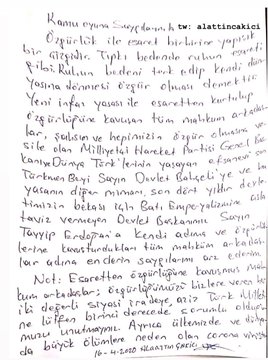 Kamu oyuna Saygılarımla
tw: alattincakici
Özgürlük ile esaret birbirine yapışık
bir çizgidir. Tıpkı bedende ruhun esareti
gibi. Ruhun bedeni terk edip kendi dün-
yasına dönmesi özgür olması demektir
Yeni infaz yasası ile esaretten kurtulup
Özgürlüğüne kavuşan tüm mahkum arkadaş-
lar, şahsım ve hepimizin özgür olmasına ve-
sile olan Milliyetçi Hareket Partisi Genel Baş-
kanı ve Dünya Türk'lerinin yaşayan efsanesi son
Türkmen Beyi Sayın Devlet Bahçeli'ye ve bu
yasanın diğer mimarı, son dört yıldır devle-
timizin bekası için Batı Emperyalizmine asla
taviz vermeyen Devlet Başkanımız Sayın
Tayyip Erdoğan'a kendi adıma ve özgürlük-
lerine kavuşturdukları tüm mahkum arkadaş-
lar adına enderin saygılarımı arz ederim
Not: Esaretten özgürlüğüne kavuşmuş mah-
kum arkadaşlar; özgürlüğümüzü bizlere veren bu
iki değerli siyasi iradeye, aziz Türk Milleti-
ne lütfen birinci derecede sorumlu olduğu-
muzu unutmayınız. Ayrıca ülkemizde ve dünya-
da büyük ölümlere neden olan corona virüsü
16-4-2020 Alaattin Çakıcı